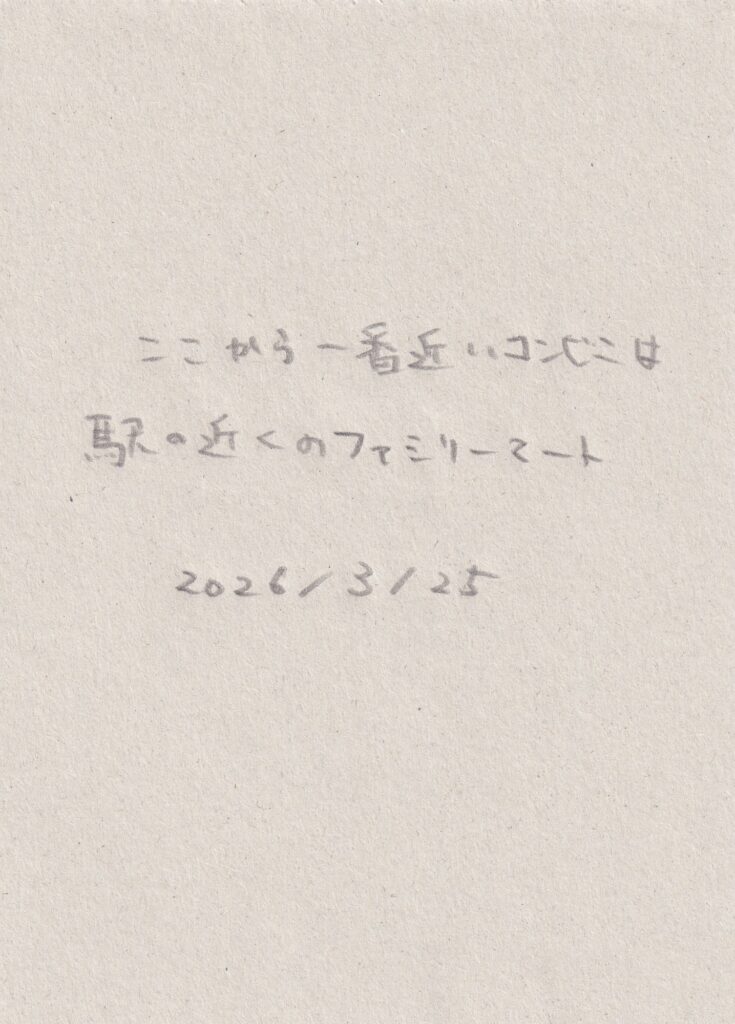 ここから一番近いコンビニは
駅の近くのファミリーマート
2026/3/25